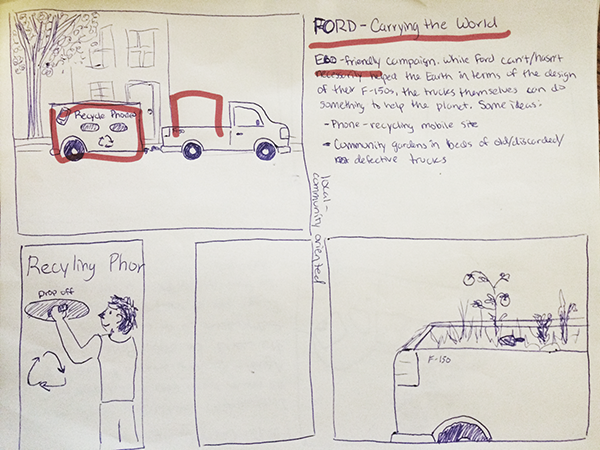 FORD - Carrying the World
ECO-friendly campaign. While Ford can't/hasn't
necessarily helped the Earth in terms of the design
of their F-150s, the trucks themselves can do
something to help the planet. Some ideas:
- Phone-recycling mobile site
- Community gardens in beds of old/discarded/
defective trucks
Recycle Phones
local-
community oriented
Recyling Phon
Drop off
F-150